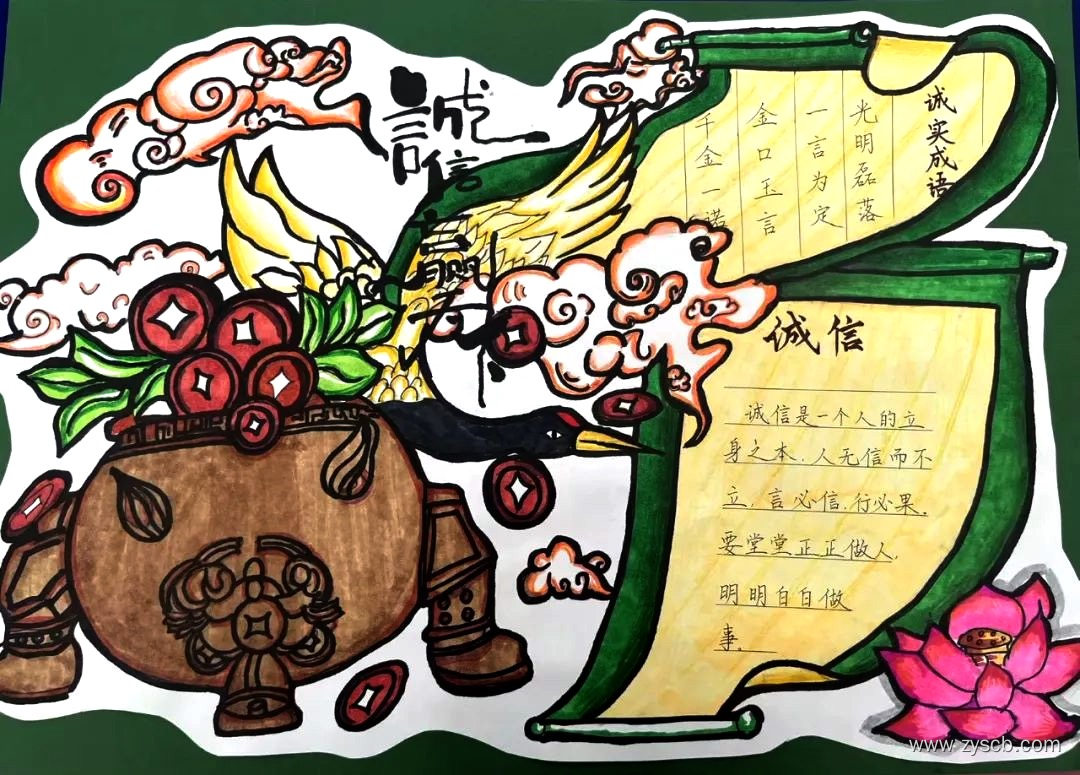 誠信贏天下
诚实成语
光明磊落
一言为定
金口玉言
千金一诺
诚信
诚信是一个人的立
身之本.人无信而不
立,言必信,行必果。
要堂堂正正做人,
明明白白做
事。
www.zyscb.com